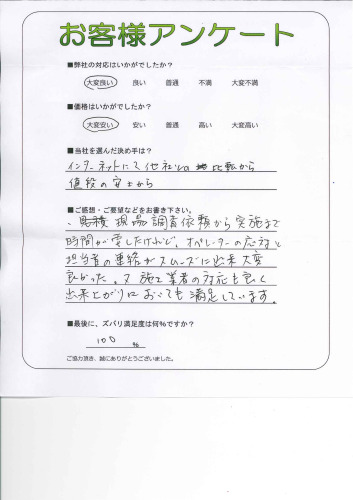 お客様アンケート
■弊社の対応はいかがでしたか?
大変良い 良い 普通 不満 大変不満
■価格はいかがでしたか?
大変安い 安い 普通 高い 大変高い
■当社を選んだ決め手は?
インターネットにて他社との比較から
値段の安さから
■ご感想・ご要望などをお書き下さい。
現場調査依頼から実施まで
時間が要したけれど、オペレーターの応対と
担当者の連絡がスムーズに出来大変
良かった。又施工業者の対応も良く
出来上がりにおいても満足しています。
■最後に、ズバリ満足度は何%ですか?
100 %
ご協力頂き、誠にありがとうございました。